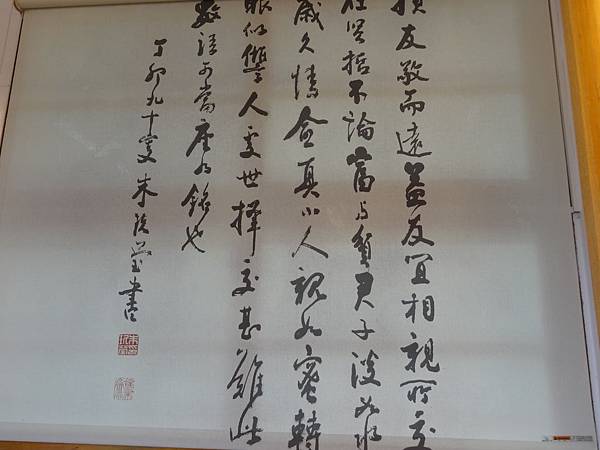 損友敬而遠益友宜相親所交
在贤哲不論富与貧君子淡如水
歲久情愈真小人親如蜜轉
眼似讐人处世擇交甚難此
數語可當座右銘也
丁卯九十叟朱書